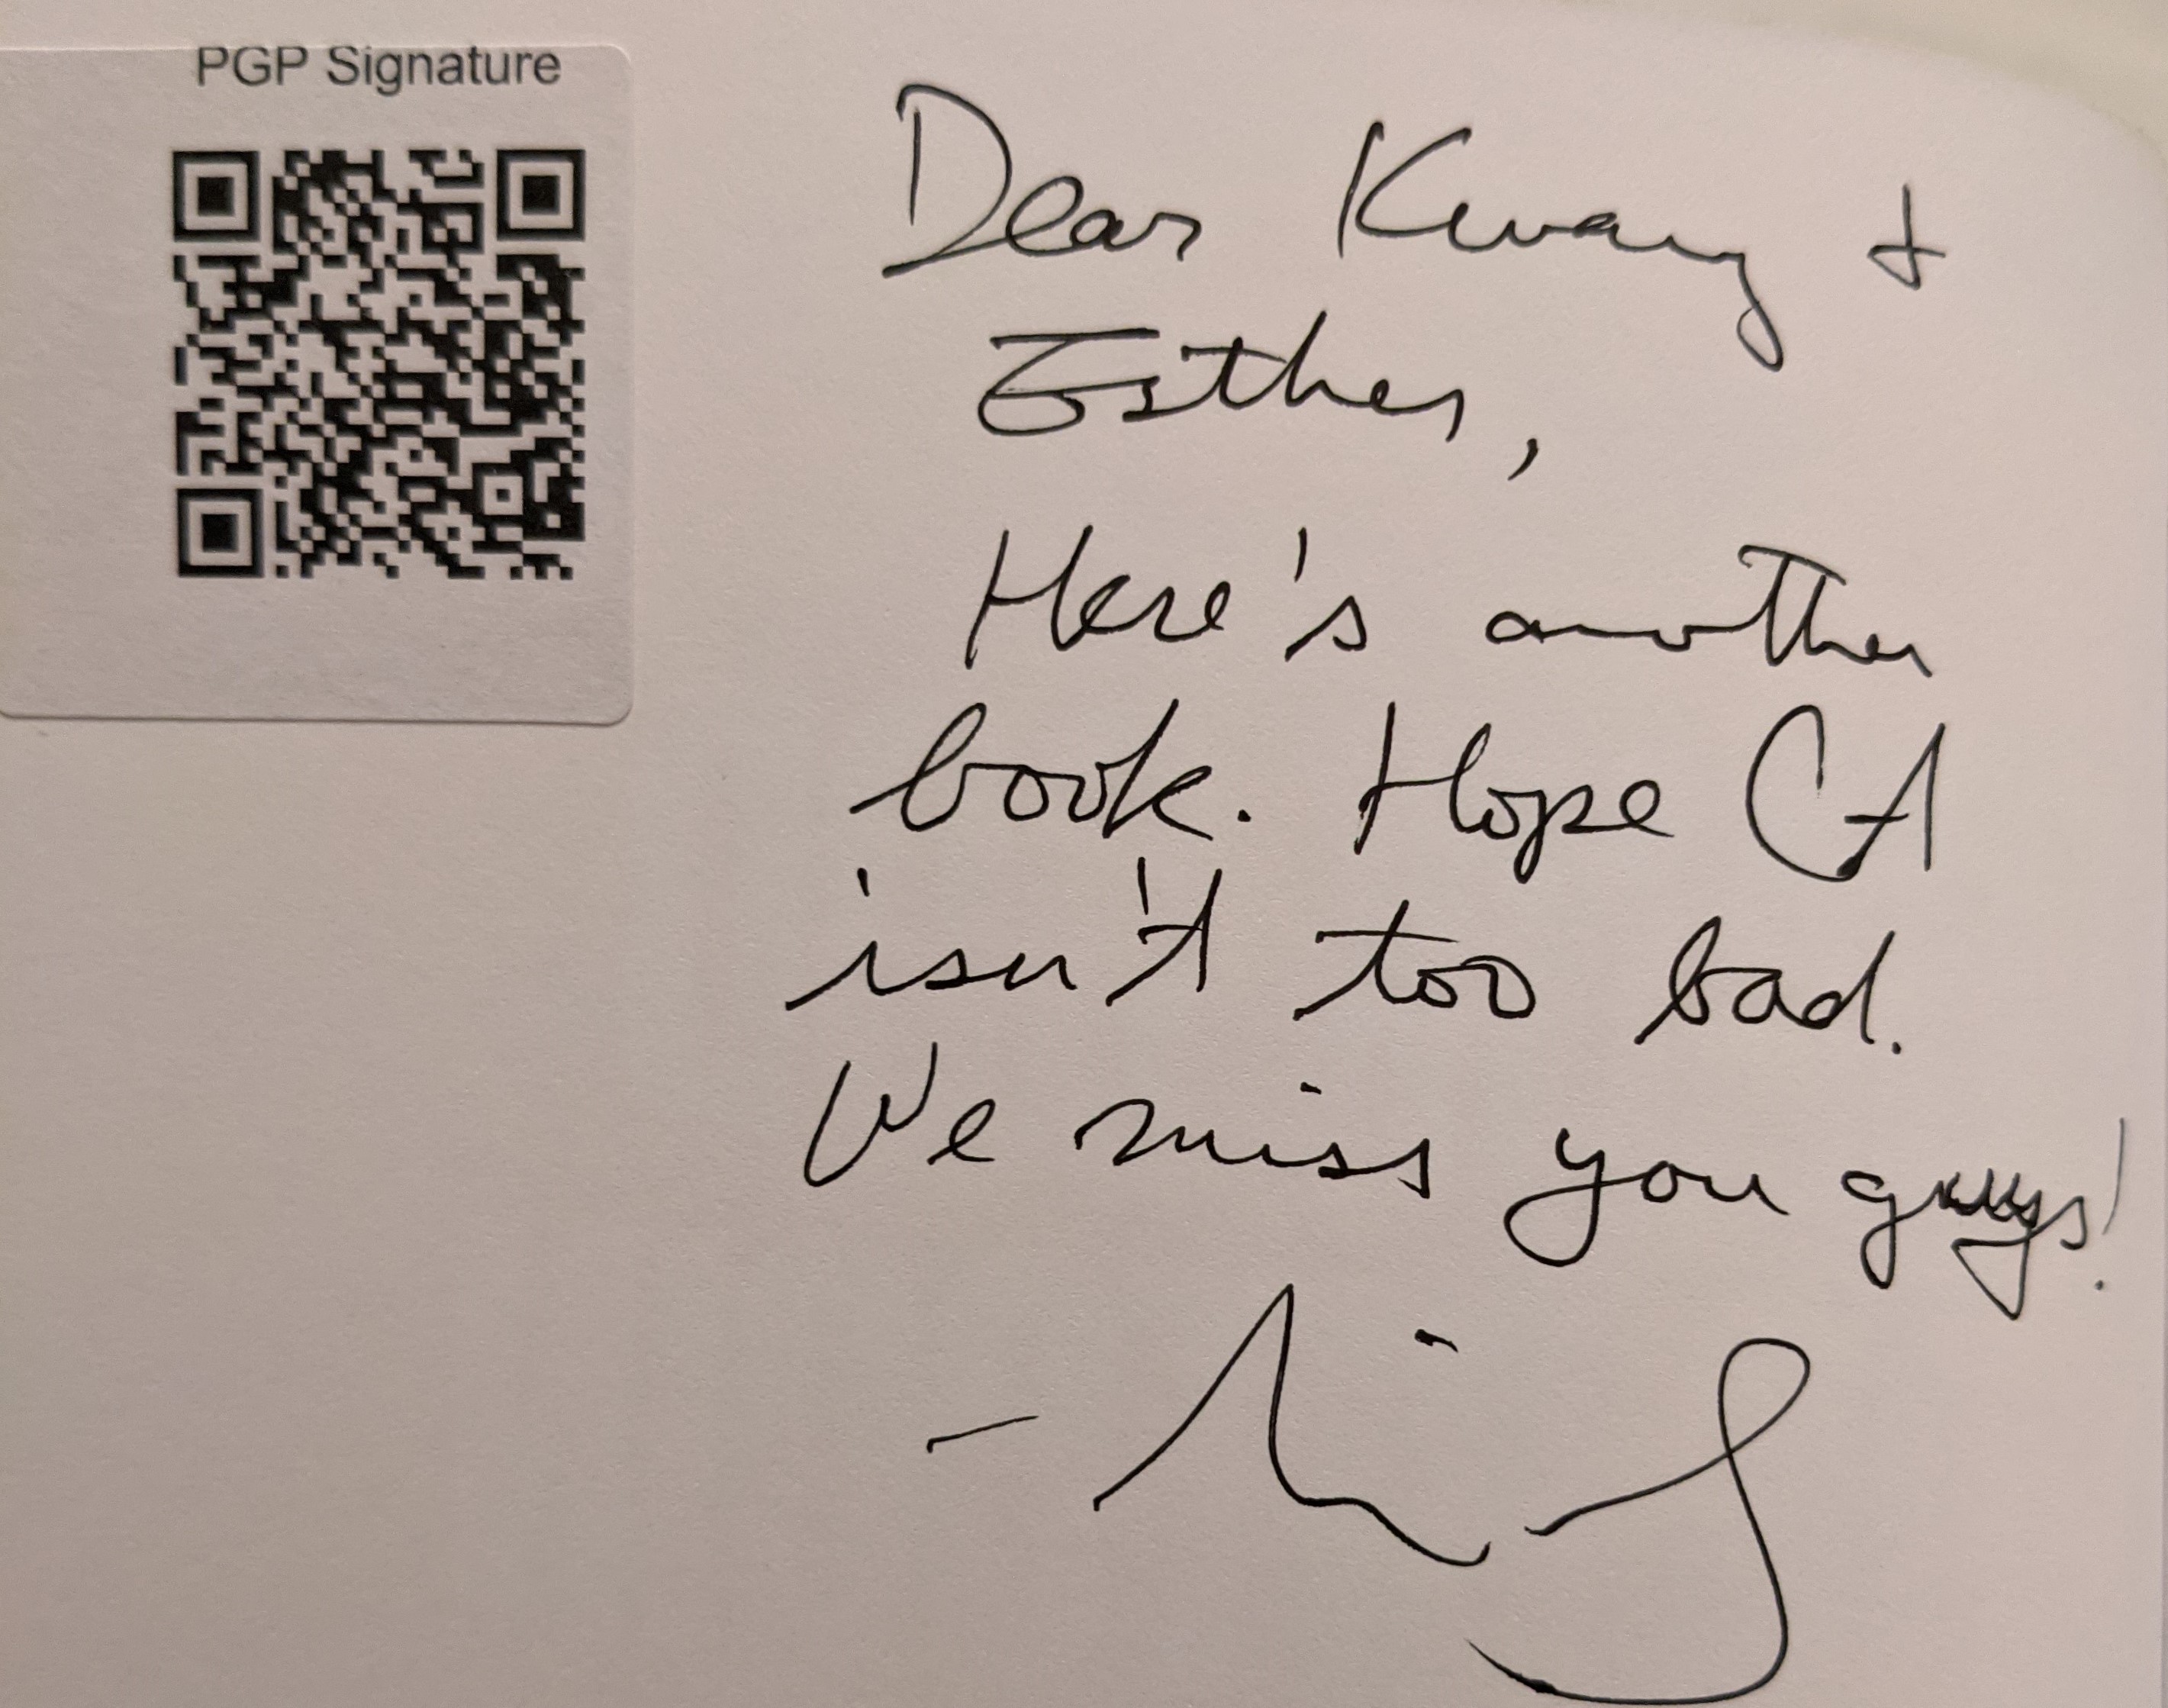 PGP Signature
Dear Kwang +
Esther,
Here's another
book. Hope CA
isn't too bad.
We miss you guys!
-